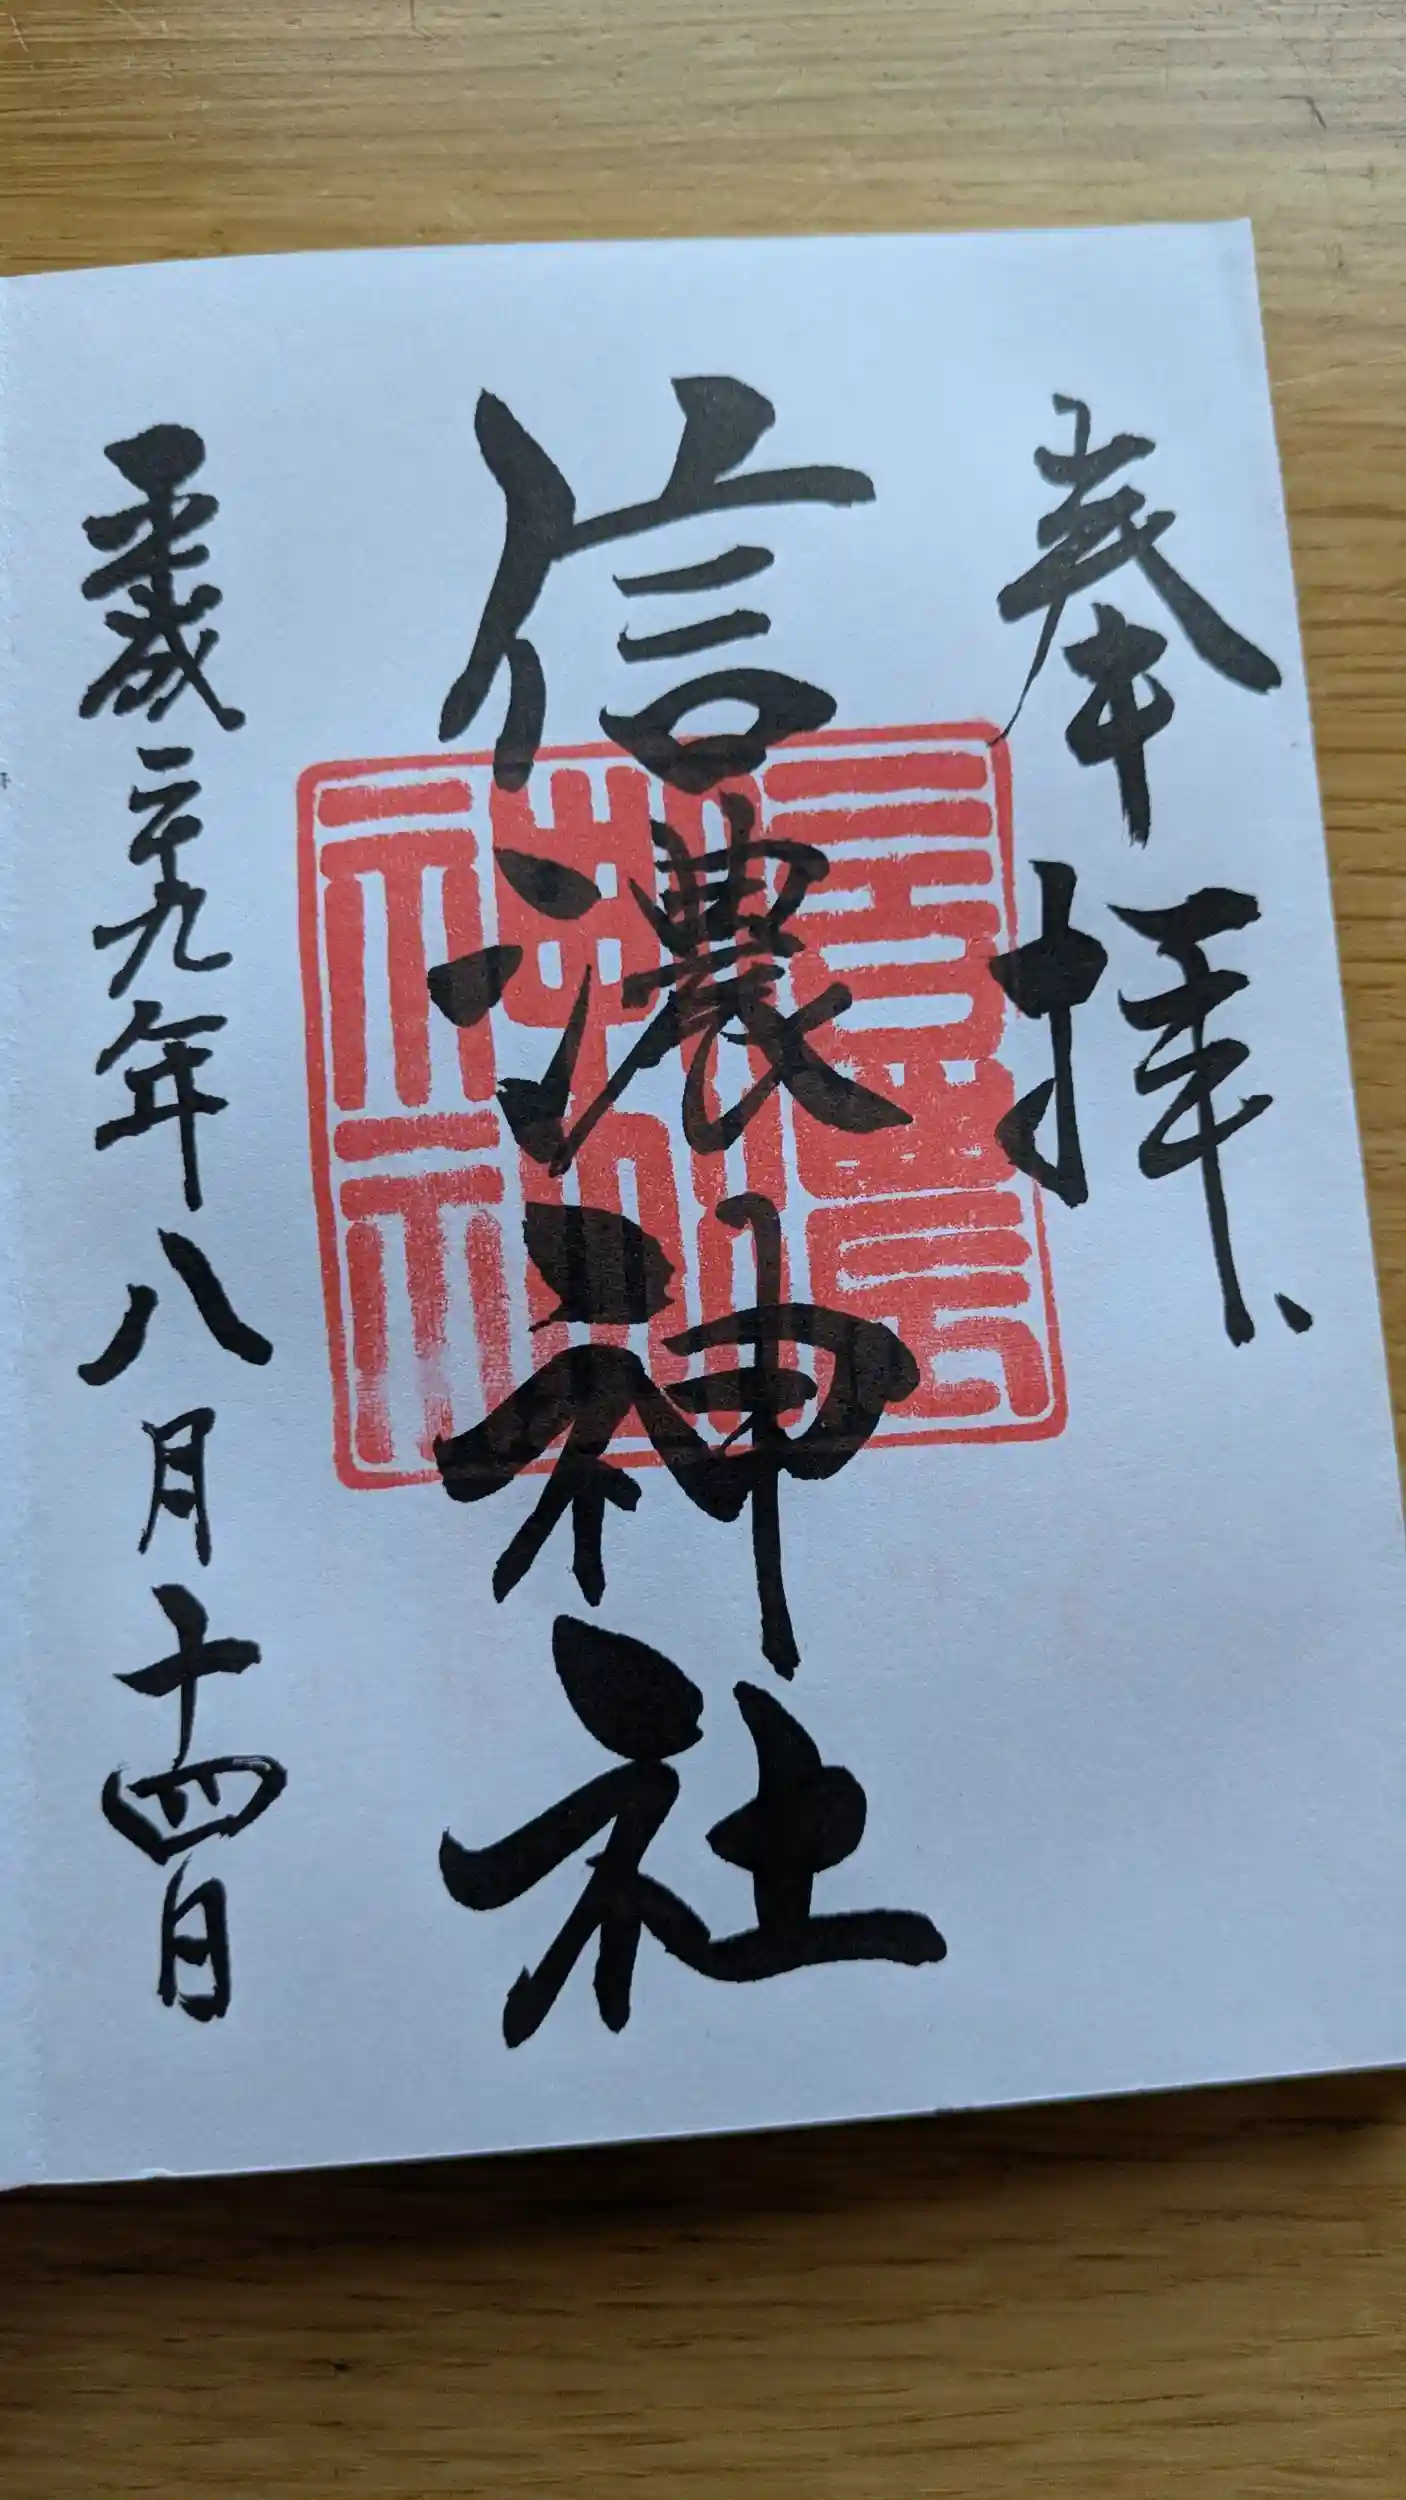 奉拝
信濃神社
信濃神社神社
平成二十九年八月十四日